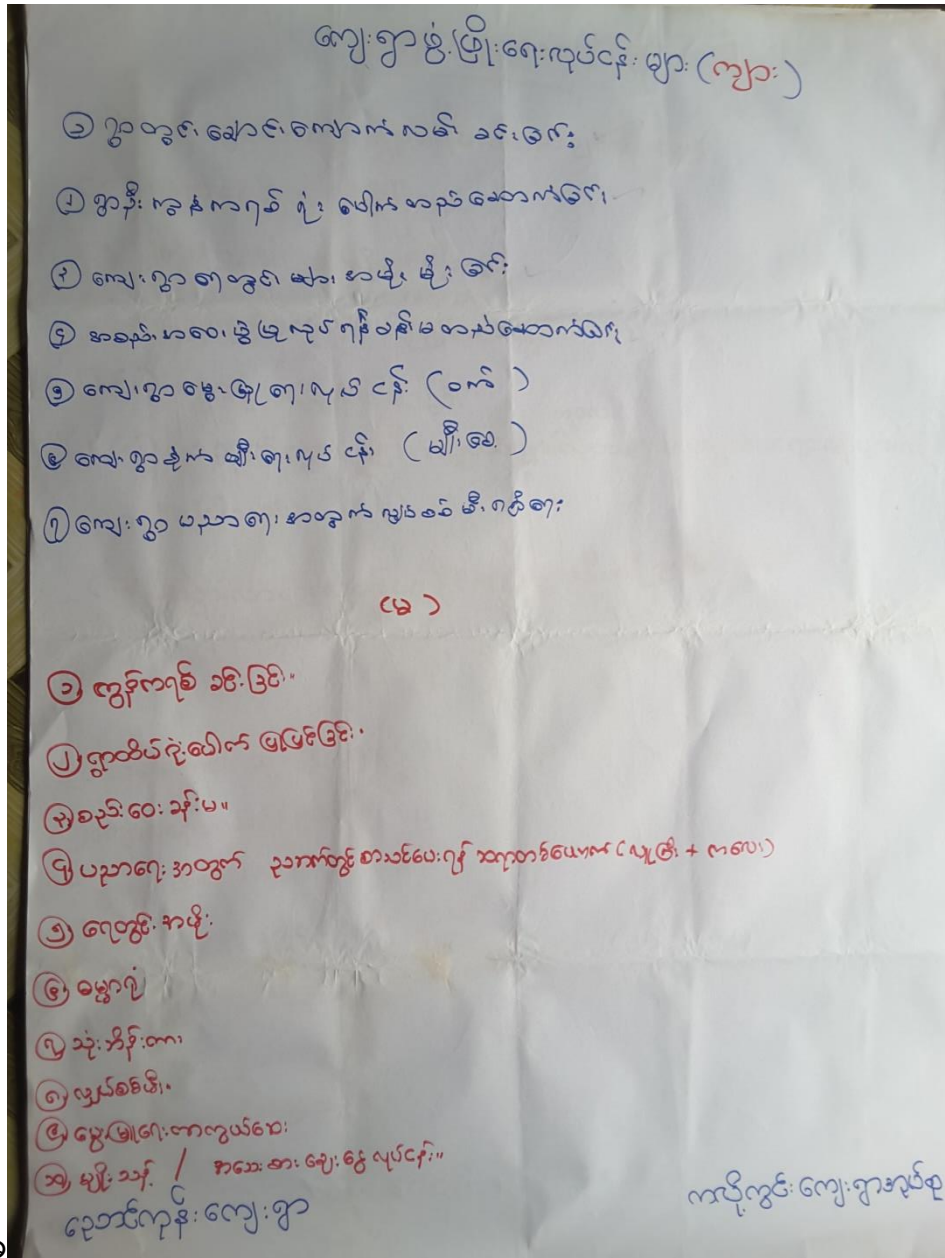 ကျေးရွာဖွံ့ဖြိုးရေးလုပ်ငန်းများ (ကျား)
၁ ရွာတွင်းချောင်းကျောက်လမ်း ခင်းခြင်း
၂ ရွာနီး ကွန်ကရစ် ရုံး ပေါက် တည်ဆောက်ခြင်း
၃ ကျေးရွာ ရေတွင်း များ အမိုး မိုး ခြင်း
၄ အစည်း အဝေး ဖွဲ့ ပြုလုပ်ရန် ခန်းမ တည်ဆောက်ခြင်း
၅ ကျေးရွာ မွေးမြူရေး လုပ်ငန်း (ဝက်)
၆ ကျေးရွာ စိုက်ပျိုးရေးလုပ်ငန်း (မျိုးစေ့)
၇ ကျေးရွာ ပညာရေး အတွက် လျှပ်စစ် မီး ရရှိရေး
(မ)
၁ ကွန်ကရစ် ခင်းခြင်း။
၂ ရွာထိပ်ဂုံးပေါက် ပြုပြင်ခြင်း။
၃ စည်းဝေးခန်းမ။
၄ ပညာရေးအတွက် ညဘက်တွင် စာသင်ပေးရန် ဆရာတစ်ယောက် (လူကြီး + ကလေး)
၅ ရေတွင်းအမိုး
၆ ဓမ္မာရုံ
၇ သုံးဘီးကား
၈ လျှပ်စစ်မီး။
၉ မွေးမြူရေးကာကွယ်ဆေး
၁၀ မျိုးသန့် / အသေးစားချေးငွေလုပ်ငန်း။
ညောင်ကုန်းကျေးရွာ
ကလိုကွင်းကျေးရွာအုပ်စု